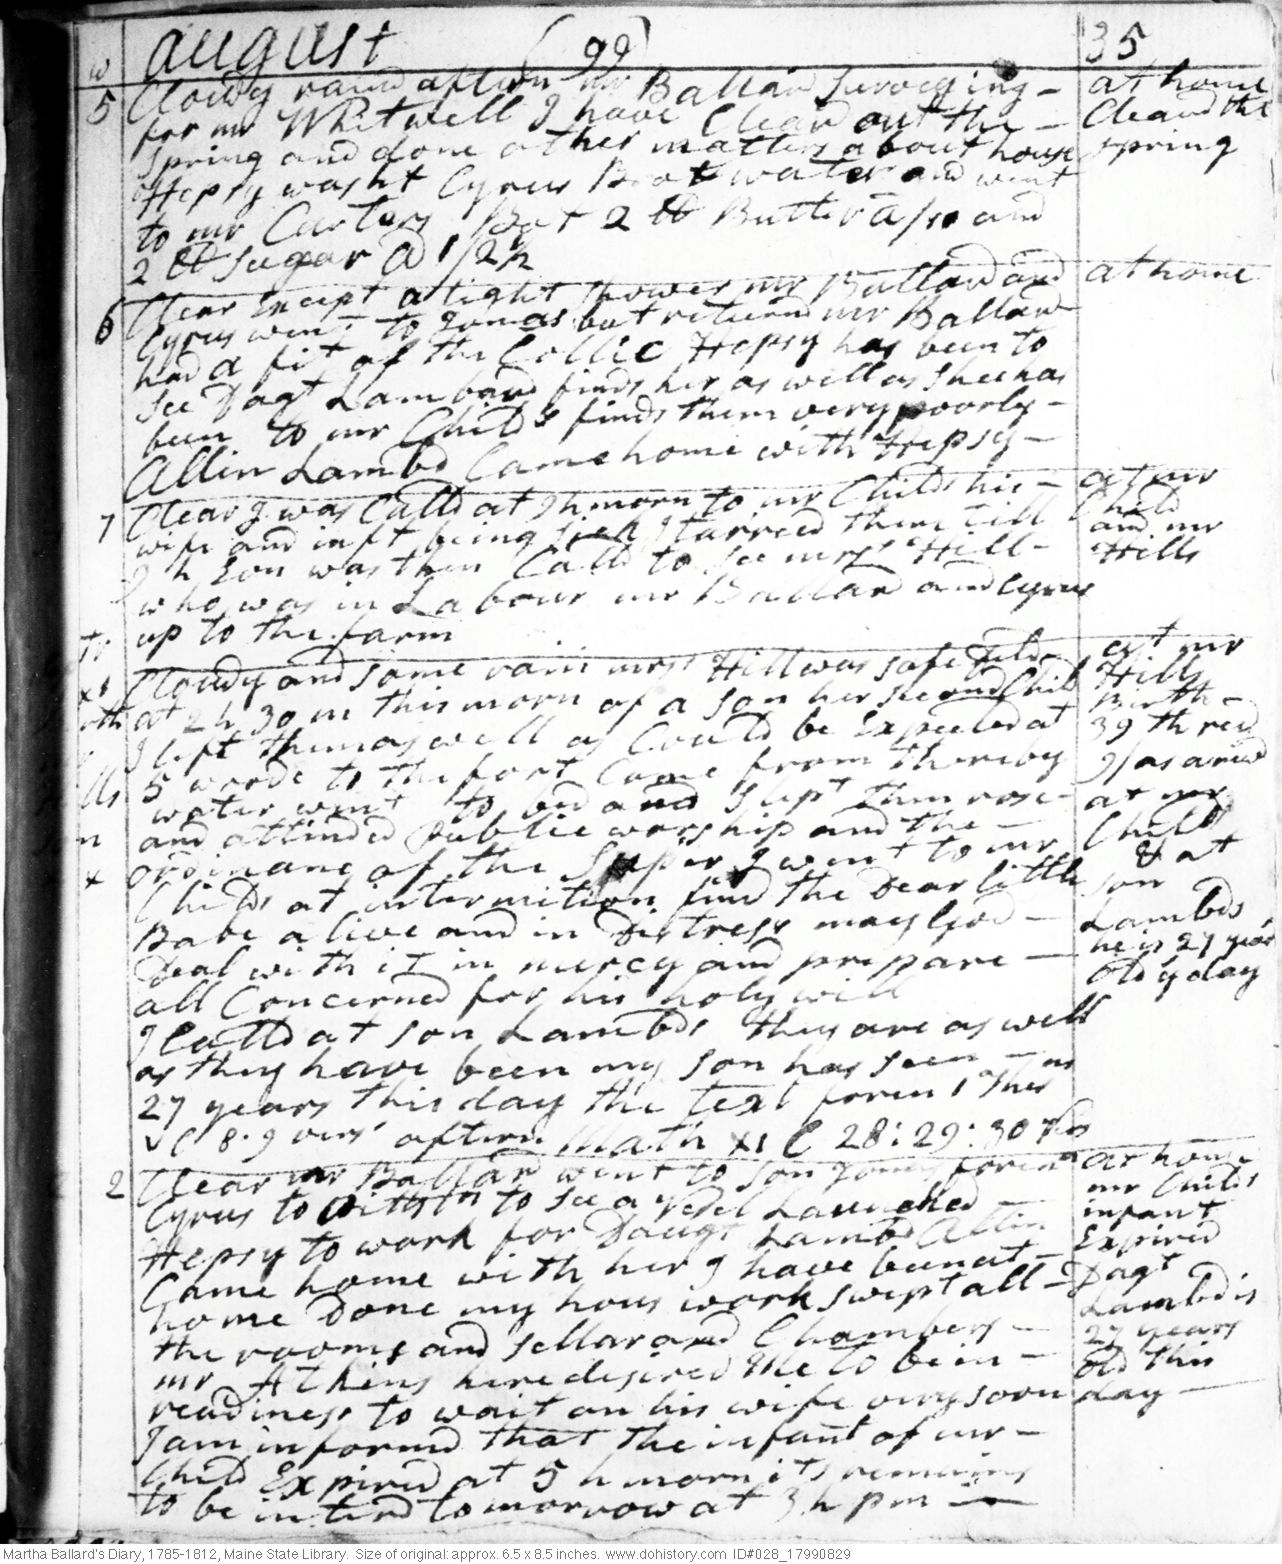 w august (99) 35
5 Cloudy raind aftern mr Ballard Surveying - at home
for mr Whitwell I have Cleard out the - Cleand the
spring and done other matters about house spring
Hepsy washt Cyrus Brot water and went
to mr Carters Bot 2 lb Butter a /10 and
2 lb Sugar @ 1/2
6 Clear Except a light shower mr Ballard and at home
Cyrus went to Jonas but returnd mr Ballard
had a fit of the Collic Hepsy has been to
see Dagt Lambard finds her as well as shee has
been to mr Childs finds them very poorly -
Allin Lambd Came home with Hepsy -
7 Clear I was Calld at h morn to mr Childs his - at mr
wife and inft being sick I tarried there till Child
h Eon was then Calld to see mrs Hill - and mr
who was in Labour mr Ballard and Cyrus Hills
up to the farm
Cloudy and some rain mrs Hill was safe at mr
at 2 h 30 m this morn of a son her second Child Hills
I left them as well as Could be Expected at Birth -
5 wrode to the fort Came from there by 39 th
water went to bed and slept then rose - at mr
and attended publice worship and the - Childs
ordinance of the Supper I went to mr & at
Childs at intermition find the Dear little son
Babe alive and in Distress may God - Lambds
Deal with it in mercy and prepare - he is 27 years
all Concerned for his holy will old y day
I Calld at son Lambds they are as well
as they have been my son has seen -
27 years this day the text foren 1 Thes
v C 8.9 vers aftern Math XI C 28:29:30
2 Clear mr Ballard went to son Jonas foren at home
Cyrus to Pittstn to see a vesel Launched - mr Childs
Hepsy to work for Daugt Lambd Allin infant
Came home with her I have been at - Expired
home Done my hous work swept all - Dagt
the rooms and sellar and Chambers - Lambd is
mr Atkins here desired me to be in - 27 years
readiness to wait on his wife very soon old this
I am informd that the infant of mr - day -
Child Expired at 5 h morn its remains
to be interd tomorrow at 3 h pm -
Martha Ballard's Diary, 1785-1812, Maine State Library. Size of original: approx. 6.5 x 8.5 inches. www.dohistory.com ID#028_17990829